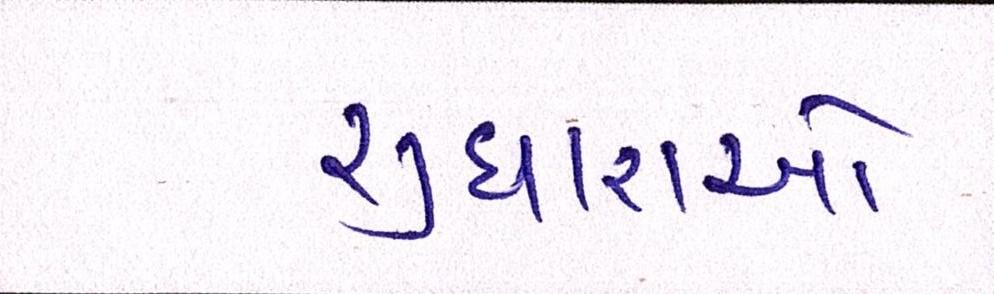 સુધારાઓ